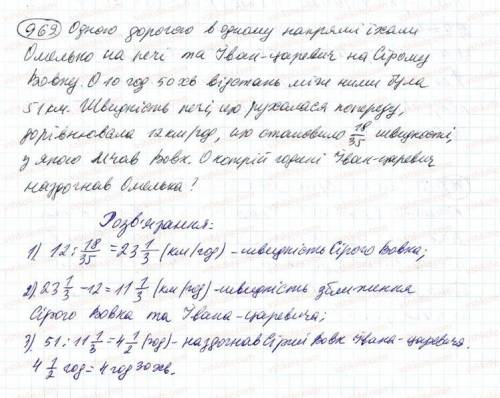 969 Одного дорогого в одному напрямі їхали
Омелько на печі та Іван-царевич на Сірому
Вовку. О 10 год 50 хв відстань між ними була
51 км. Швидкість печі, що рухалася попереду,
дорівнювала 12 км/год, що становило 18/35 швидкості,
з якою мчав Вовк. О котрій годині Іван-царевич
наздогнав Омелька?
Розв'язання:
1) 12 : 18/35 = 23 1/3 (км/год) - швидкість Сірого Вовка;
2) 23 1/3 - 12 = 11 1/3 (км/год) - швидкість зближення
Сірого Вовка та Івана-царевича;
3) 51 : 11 1/3 = 4 1/2 (год) - наздогнав Сірий Вовк Івана-царевича.
4 1/2 год = 4 год 30 хв.